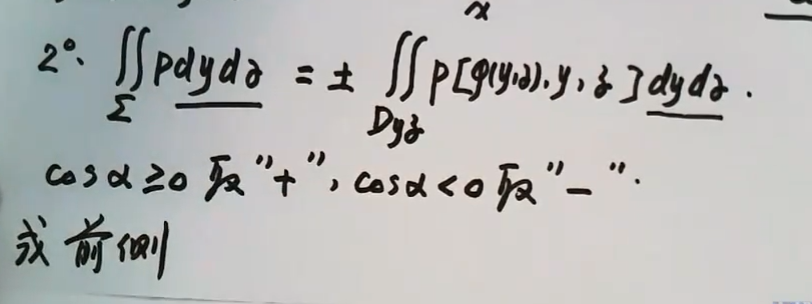 x
2°. ∬_Σ P dydz = ± ∬_{Dyz} P[φ(y,z), y, z] dydz.
cosα≥0 取"+", cosα<0 取"-".
或 前侧